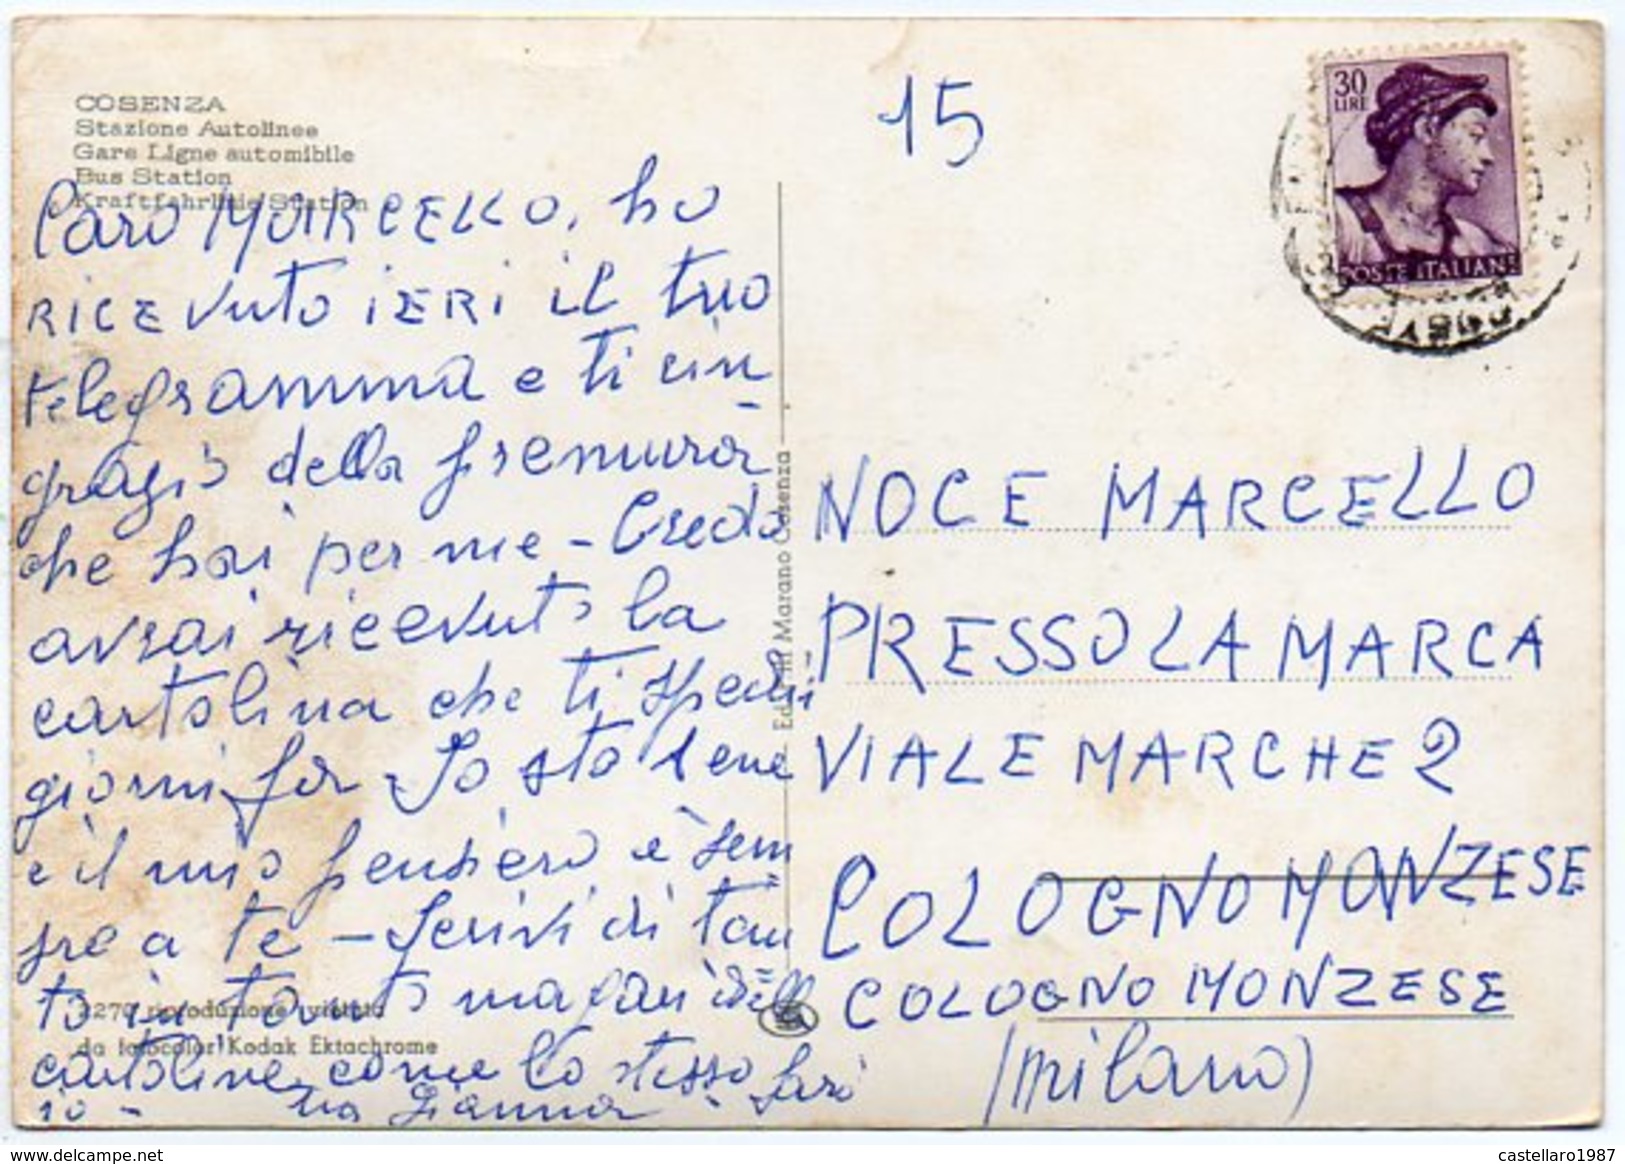 COSENZA
Stazione Autolinee
Gare Ligne automibile
Bus Station
Kraftfahrlinie Station
Caro MARCELLO, ho
RICEVUTO IERI il tuo
telegramma e ti rin
grazio della premura
che hai per me - Credo
avrai ricevuto la
cartolina che ti spedii
giorni fa - Io sto bene
e il mio pensiero è sem
pre a te - Scrivi di tan
to in tanto magari delle
cartoline, come lo stesso farò
io - tua Gianna
2270 riproduzione vietata
da fotocolor Kodak Ektachrome
Marano Cosenza
15
30
LIRE
POSTE ITALIANE
NOCE MARCELLO
PRESSO LA MARCA
VIALE MARCHE 2
COLOGNO MONZESE
COLOGNO MONZESE
(Milano)
castellaro1987